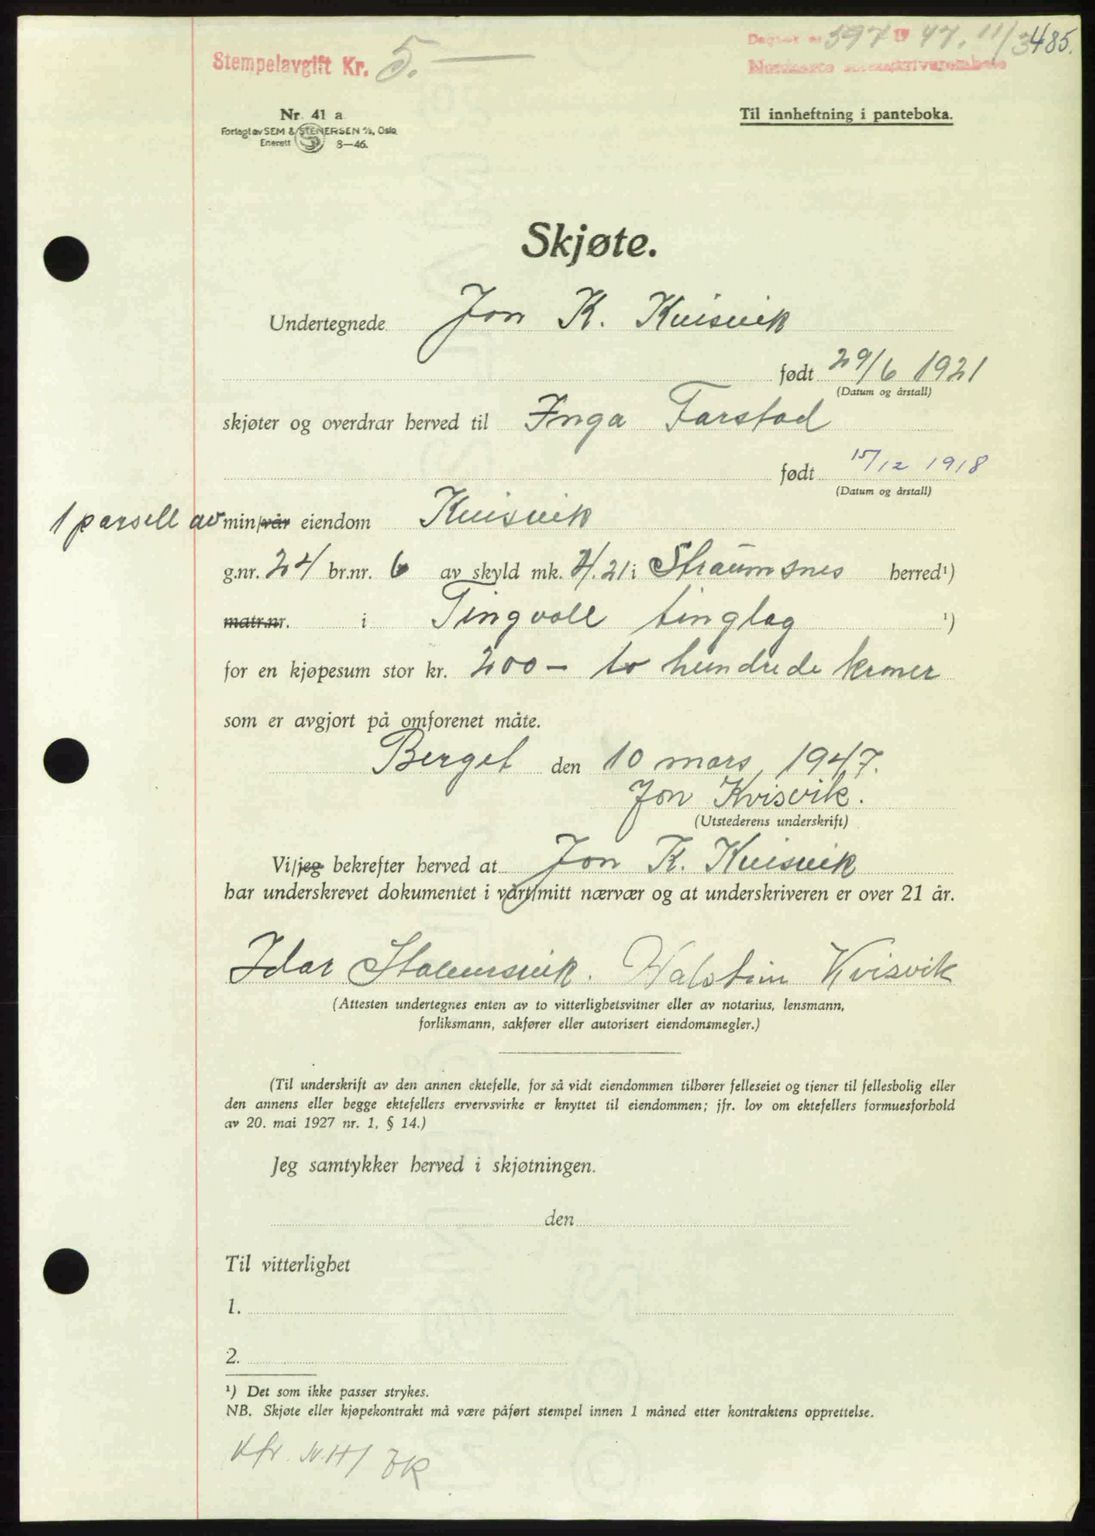 Stempelavgift Kr. 5.—
Dagbok nr 597 19 47. 11/3 485.
Nordmøre sorenskriverembete
Nr. 41 a
Forlagt av SEM & STENERSEN A/S, Oslo
Enerett 8—46.
Til innheftning i panteboka.
Skjøte.
Undertegnede Jon K. Kvisvik
født 29/6 1921
(Datum og årstall)
skjøter og overdrar herved til Inga Farstad
født 15/12 1918
(Datum og årstall)
1 parsell av min/vår eiendom Kvisvik
g.nr. 24 br.nr. 6 av skyld mk. 21 i Straumsnes herred¹)
matr.nr. i Tingvoll tinglag ¹)
for en kjøpesum stor kr. 200 — to hundrede kroner
som er avgjort på omforenet måte.
Berget den 10 mars 1947.
Jon Kvisvik.
(Utstederens underskrift)
Vi/jeg bekrefter herved at Jon K. Kvisvik
har underskrevet dokumentet i vårt/mitt nærvær og at underskriveren er over 21 år.
Idar Kvisvik
(Attesten undertegnes enten av to vitterlighetsvitner eller av notarius, lensmann,
forliksmann, sakfører eller autorisert eiendomsmegler.)
(Til underskrift av den annen ektefelle, for så vidt eiendommen tilhører felleseiet og tjener til fellesbolig eller
den annens eller begge ektefellers ervervsvirke er knyttet til eiendommen; jfr. lov om ektefellers formuesforhold
av 20. mai 1927 nr. 1, § 14.)
Jeg samtykker herved i skjøtningen.
den
Til vitterlighet
1.
2.
¹) Det som ikke passer strykes.
NB. Skjøte eller kjøpekontrakt må være påført stempel innen 1 måned etter kontraktens opprettelse.